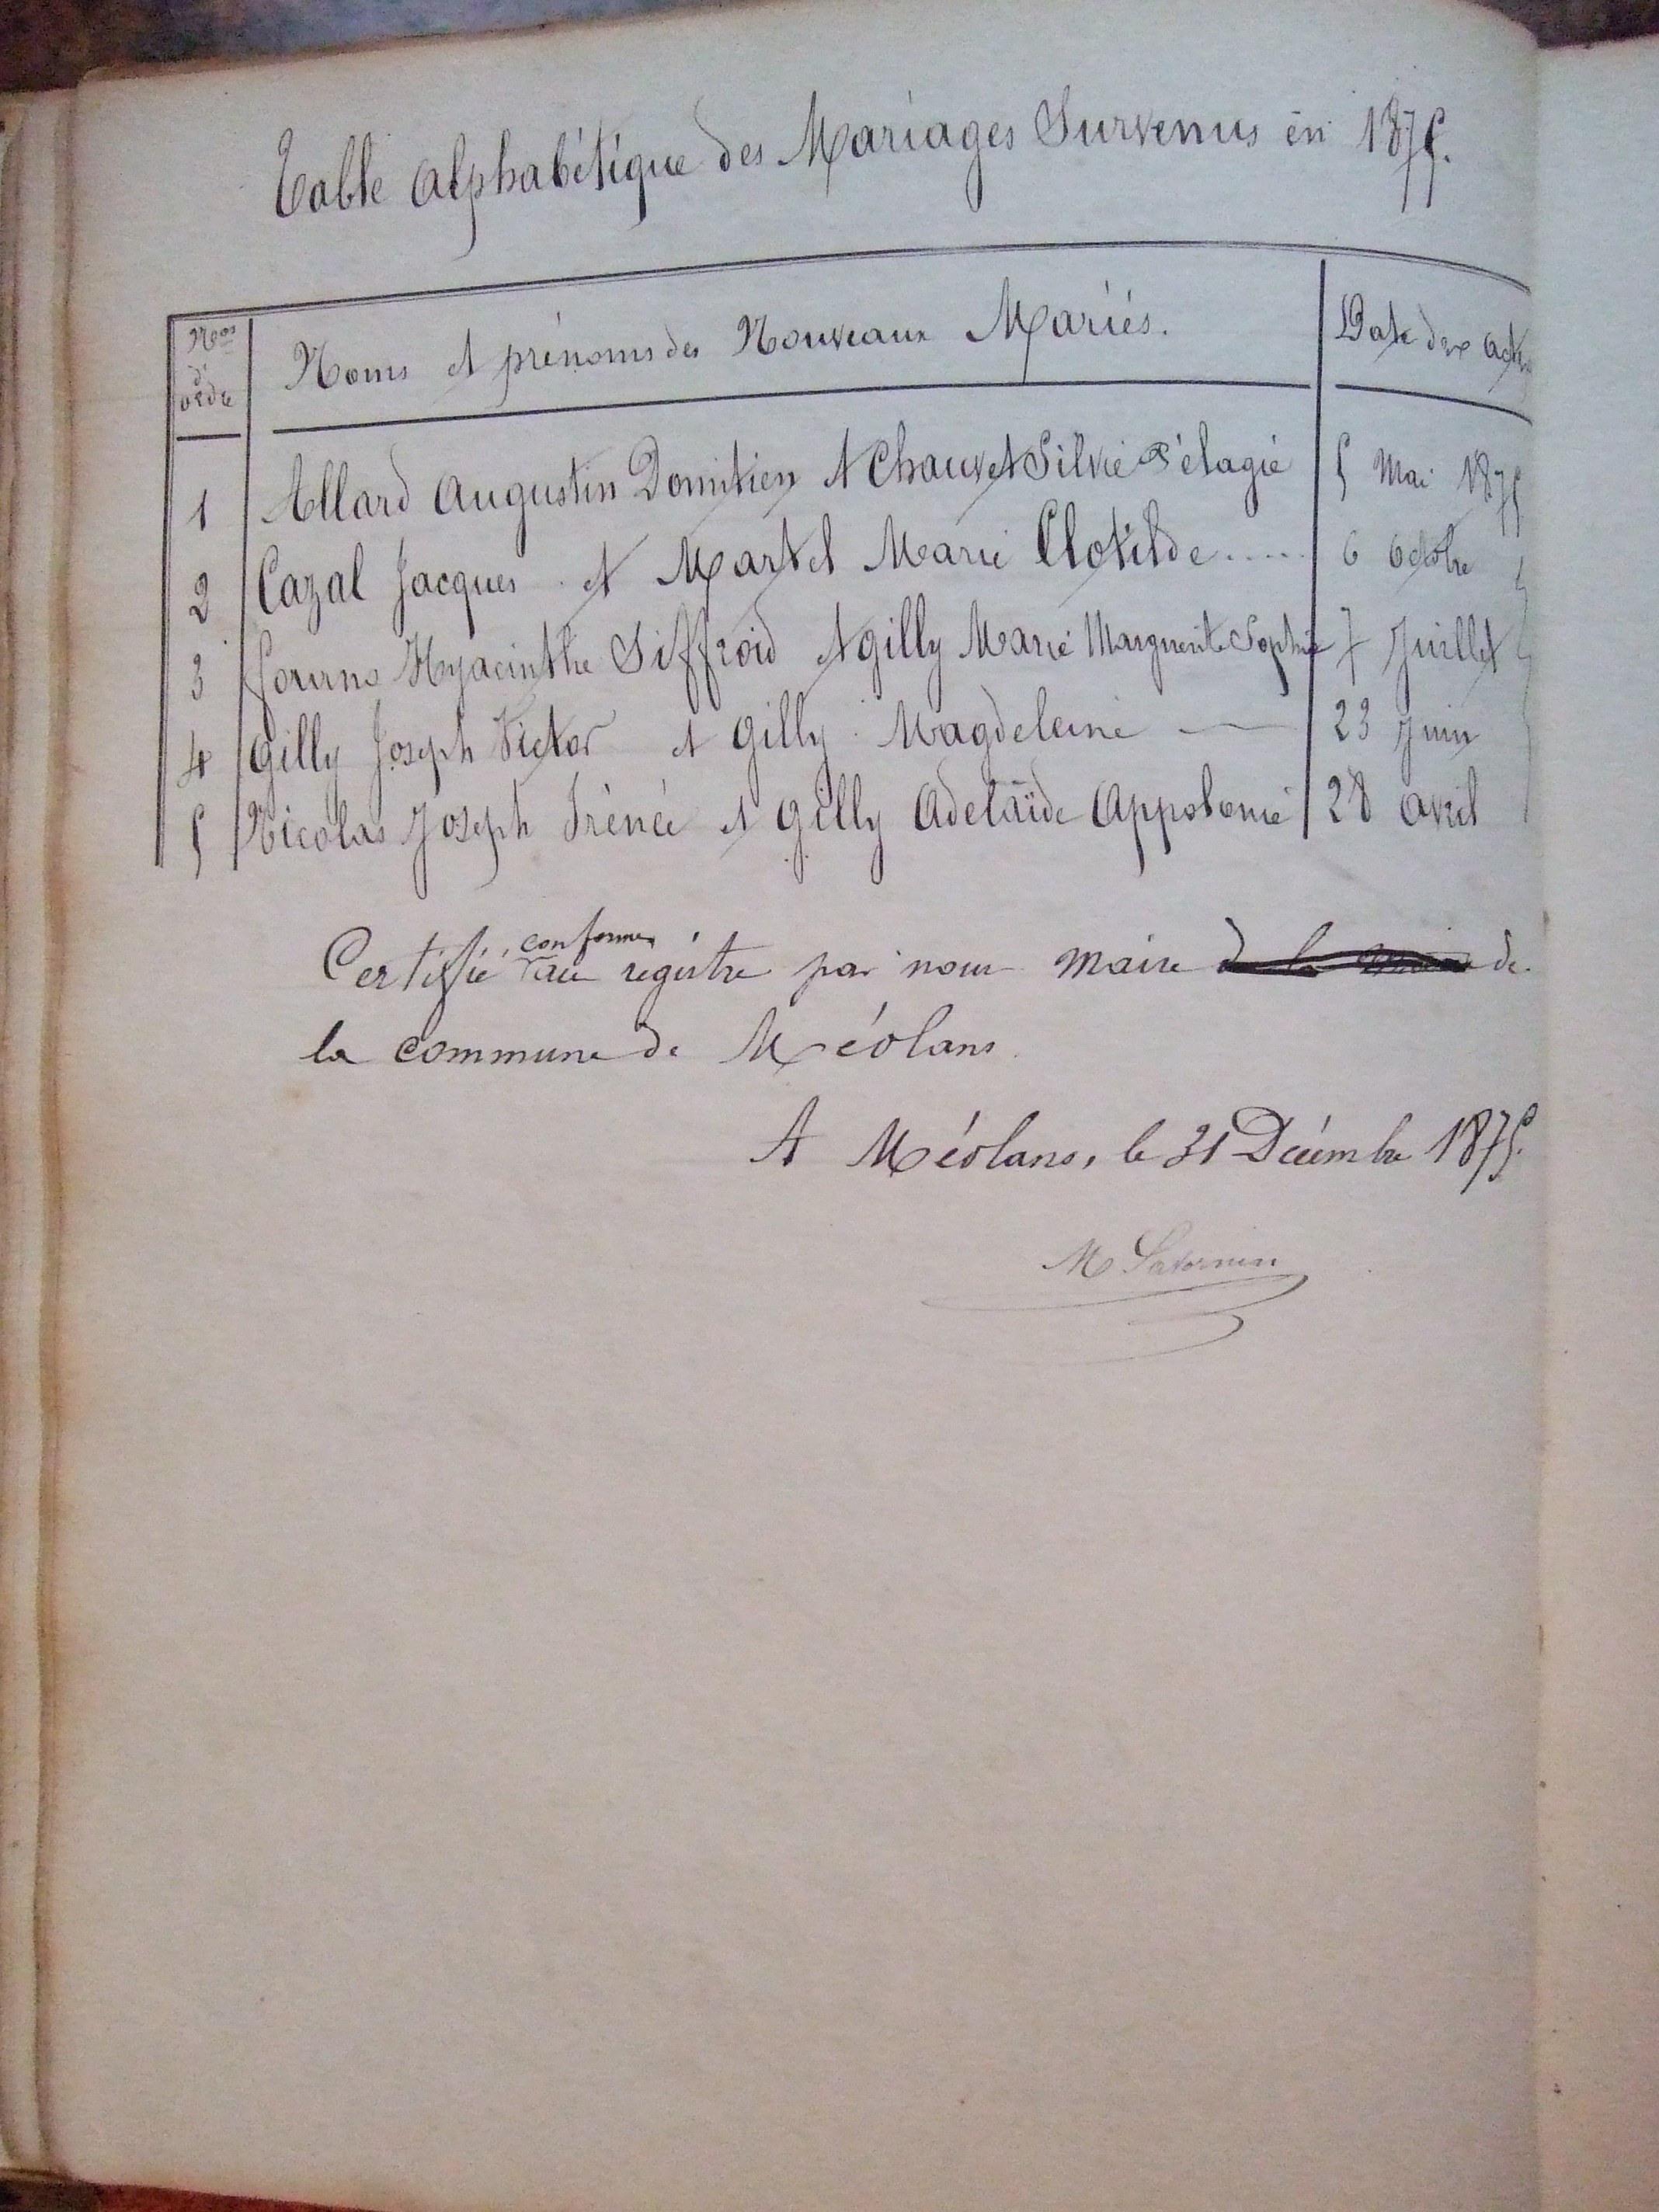 Table Alphabétique des Mariages Survenus en 1875.
Nos d'ordre Noms et prénoms des Nouveaux Mariés. Date des actes
1 Allard Augustin Domitien et Chauvet Silvie Pélagie 5 Mai 1875
2 Cazal Jacques et Martel Marie Clotilde ..... 6 octobre
3 Hyacinthe Siffroid et gilly Marie Marguerite Sophie 7 Juillet
4 gilly Joseph Victor et gilly Magdeleine — 23 Juin
5 Nicolas Joseph Irénée et gilly Adelaïde Appolonie 28 avril
Certifié conforme au registre par nous maire de
la commune de Méolans.
A Méolans, le 31 Décembre 1875.
M Savornin